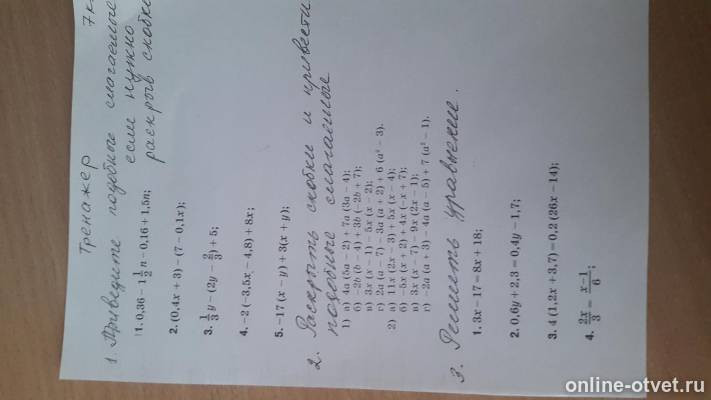 Тренажер 7 к
1. Приведите подобные слагаемые
если нужно
раскрыв скобк
1. 0,36 − 1 1/2 n − 0,16 + 1,5n;
2. (0,4x + 3) − (7 − 0,1x);
3. 1/3 y − (2y − 2/3) + 5;
4. −2 (−3,5x − 4,8) + 8x;
5. −17 (x − y) + 3(x + y);
2. Раскрыть скобки и привести
подобные слагаемые
1) а) 4a (5a − 2) + 7a (3a − 4);
б) −2b (b − 4) + 3b (−2b + 7);
в) 3x (x − 1) − 5x (x − 2);
г) 2a (a − 7) − 3a (a + 2) + 6 (a² − 3).
2) а) 11x (2x − 3) + 5x (x − 4);
б) −5x (x + 2) + 4x (−x + 7);
в) 3x (x − 7) − 9x (2x − 1);
г) −2a (a + 3) − 4a (a − 5) + 7 (a² − 1).
3. Решить уравнение.
1. 3x − 17 = 8x + 18;
2. 0,6y + 2,3 = 0,4y − 1,7;
3. 4 (1,2x + 3,7) = 0,2 (26x − 14);
4. 2x/3 = x−1/6;
online-otvet.ru